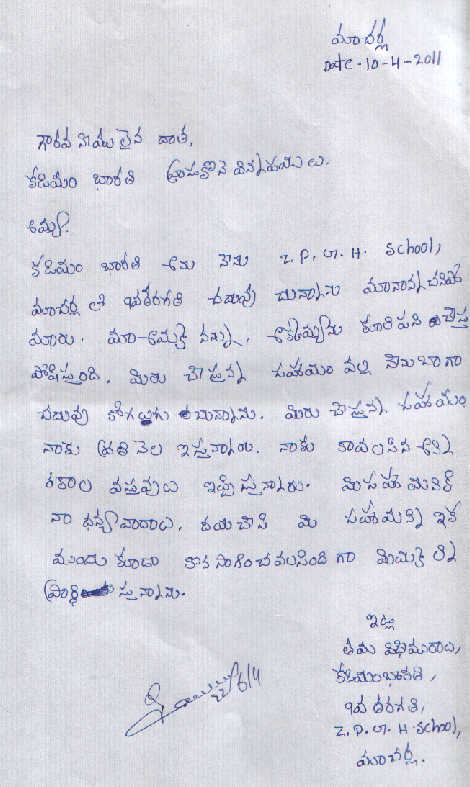 మాచర్ల
Date-10-4-2011
గౌరవ నీయులైన దాత,
కడియం భారతి వ్రాసుకొనే విన్నపములు.
అమ్మా,
కడియం భారతి అను నేను Z.P.G.H. School,
మాచర్ల లో 10వతరగతి చదువు చున్నాను మానాన్న చనిపో
యారు. మా అమ్మ నన్ను, అక్కయ్యను కూలి పని చేస్తు
పోషిస్తుంది. మీరు చేస్తున్న సహాయం వల్ల నేను బాగా
చదువు కోగలుగు తున్నాను. మీరు చేస్తున్న సహాయం
నాకు ప్రతి నెల ఇస్తున్నారు. నాకు కావలసిన అన్ని
రకాల వస్తువులు ఇప్పిస్తున్నారు. మీ సహాయానికి
నా ధన్యవాదాలు, దయచేసి మీ సహాయాన్ని ఇక
ముందు కూడా కొన సాగించవలసింది గా మిమ్మల్ని
ప్రార్థి స్తున్నాను.
ఇట్లు
తమ విధేయురాలు,
కడియంభారతి,
10వ తరగతి,
Z.P.G.H. School,
మాచర్ల.